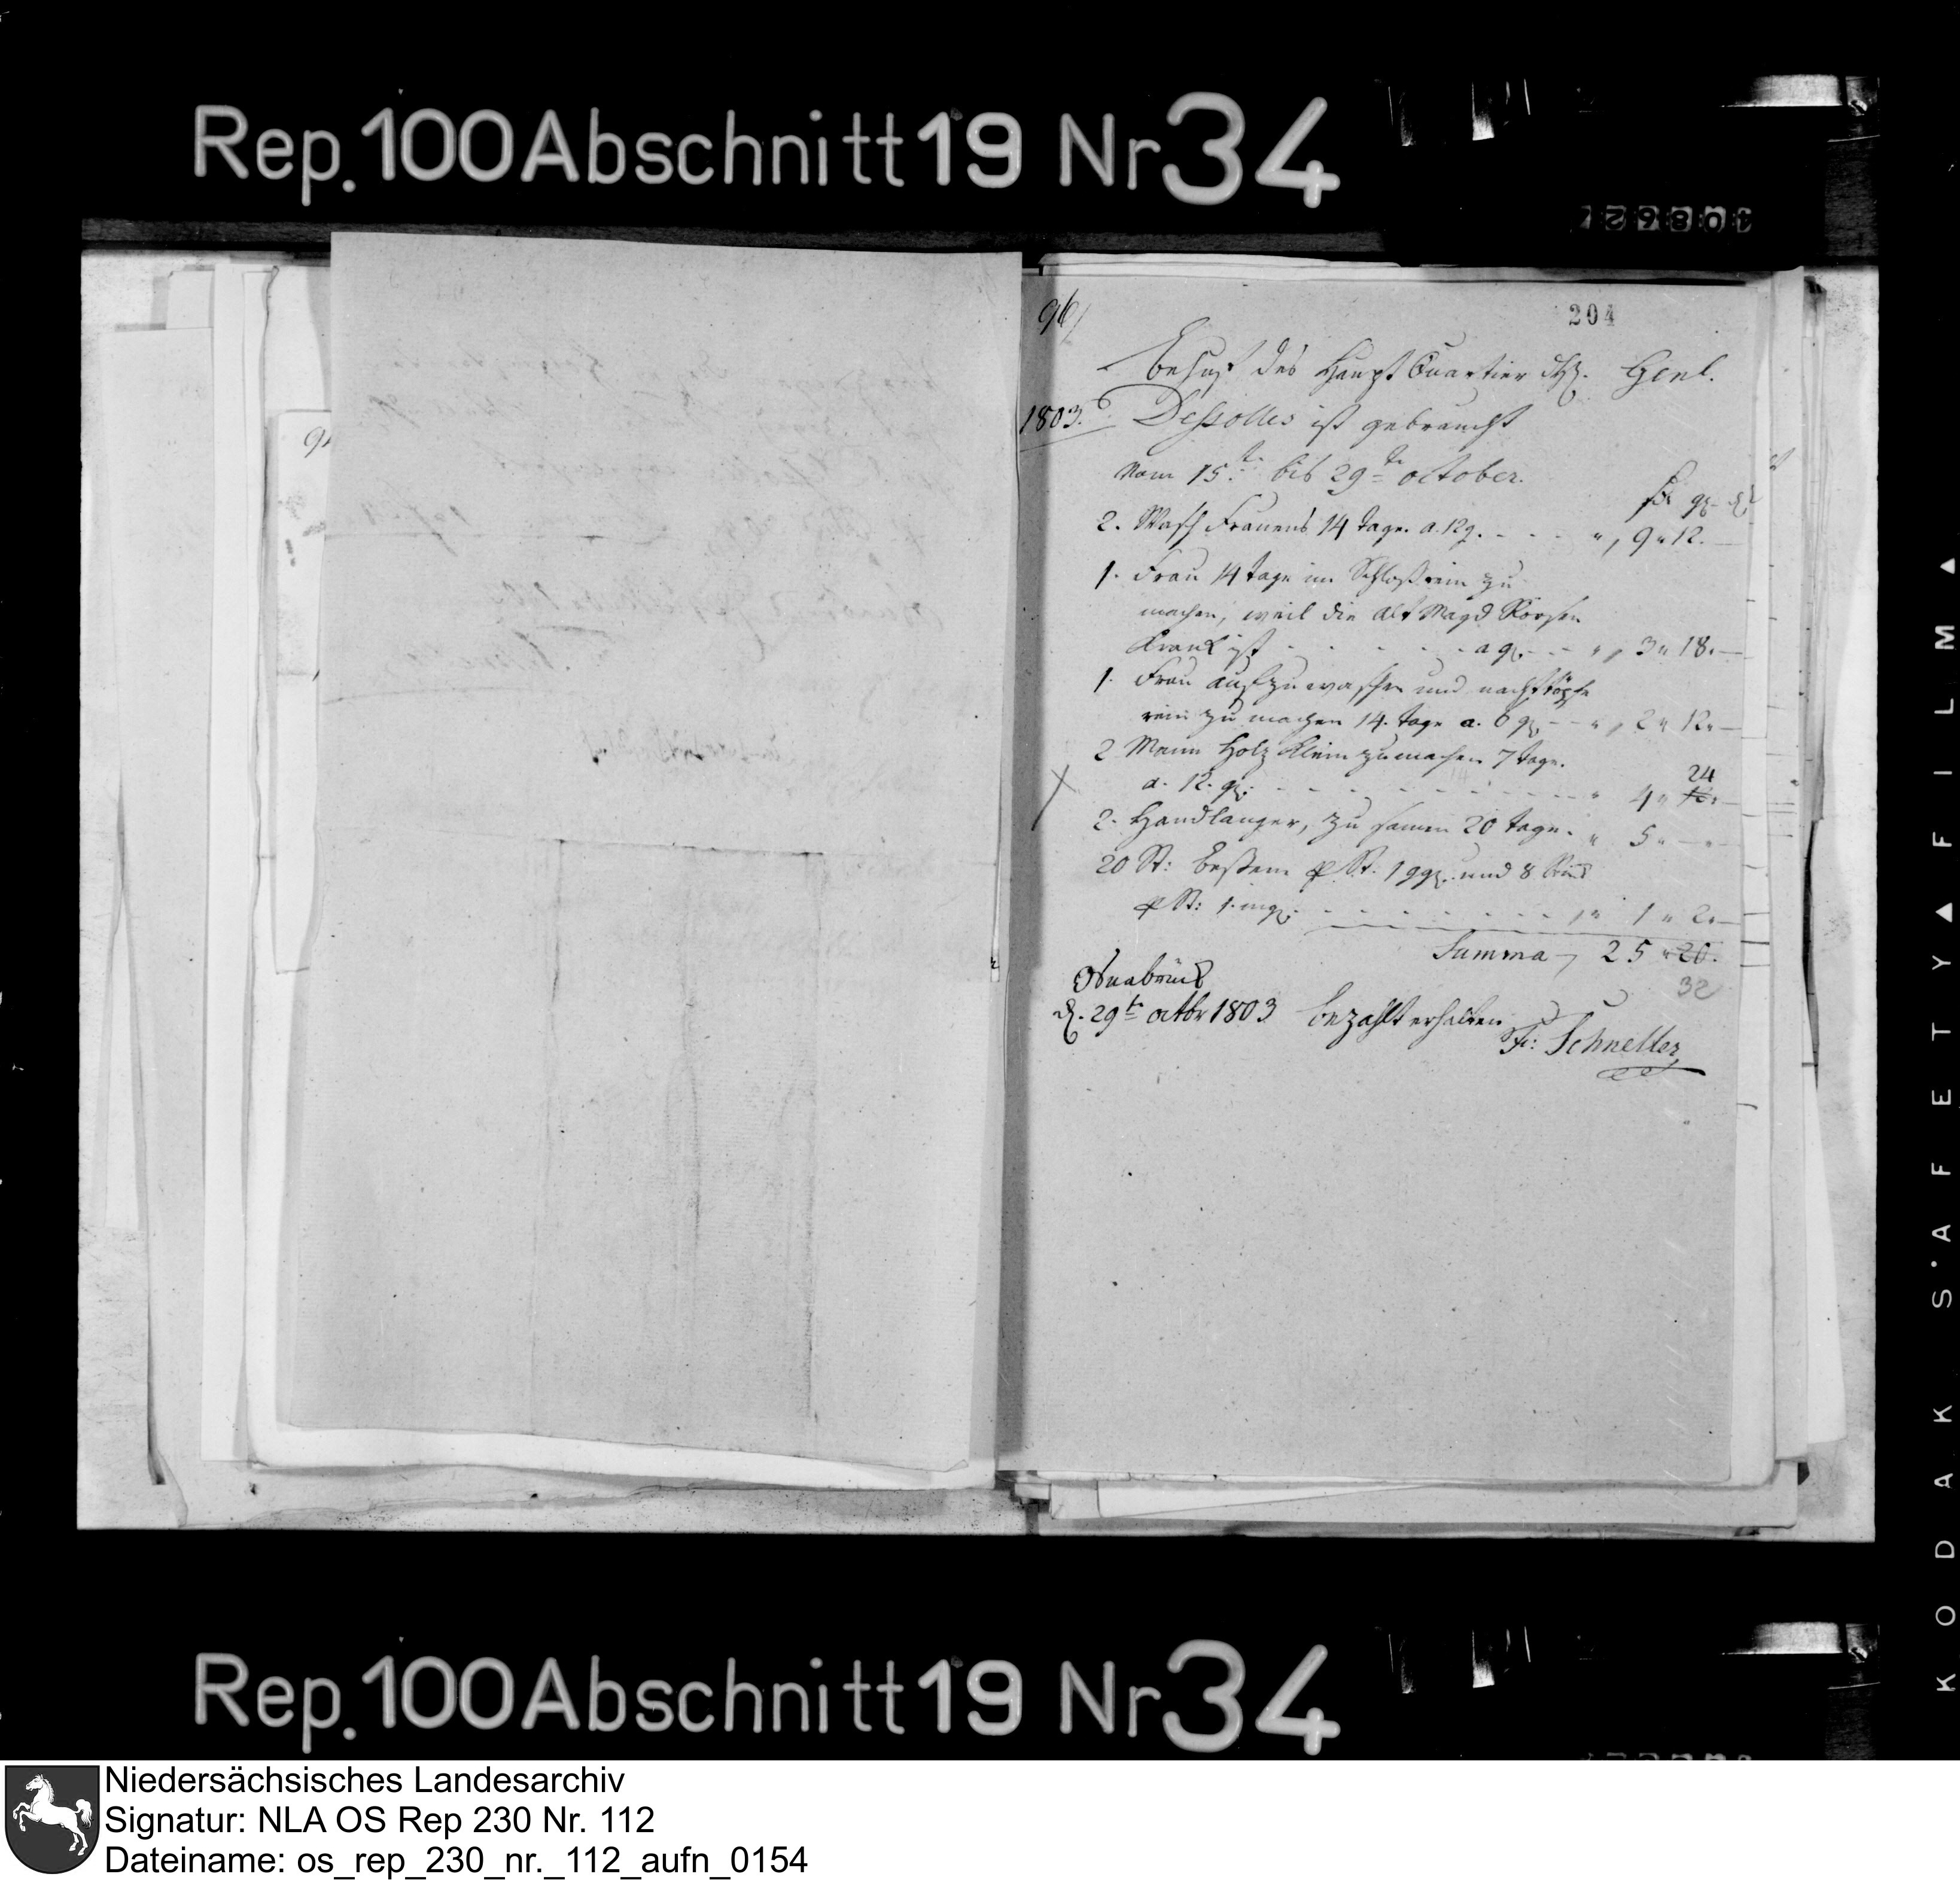 Rep. 100 Abschnitt 19 Nr 34
96/
204
Behuf des Haupt Quartier Genl.
1803. Dessolles ist gebraucht
Vom 15ten bis 29ten october.
2. Wasch Frauens 14 tage. a. 12 g. - - - - " 9 " 12. —
1. Frau 14 tage im Schloß rein zu
machen, weil die Alt Magd
Krank ist - - - - - a 9 g. - - - " 3 " 18. —
1. Frau aufzuwaschen und nachttöpfe
rein zu machen 14. tage a. 6 g. - - " 2 " 12. —
2 Mann Holz klein zu machen 7 tage.
a. 12. g. - - - - - - - - - " 4 " 24
2. Handlanger, zu samen 20 tage. " 5 " — "
20 St: Beßem p St. 1 ggr. und 8
p St: 1. mg. - - - - - - - - " 1 " 2. —
Summa 25 " 20.
32
Osnabrück
d. 29te octbr 1803 bezahlt erhalten
Fr: Schnetter
Rep. 100 Abschnitt 19 Nr 34
KODAK S'AFETY FILM
Niedersächsisches Landesarchiv
Signatur: NLA OS Rep 230 Nr. 112
Dateiname: os_rep_230_nr._112_aufn_0154